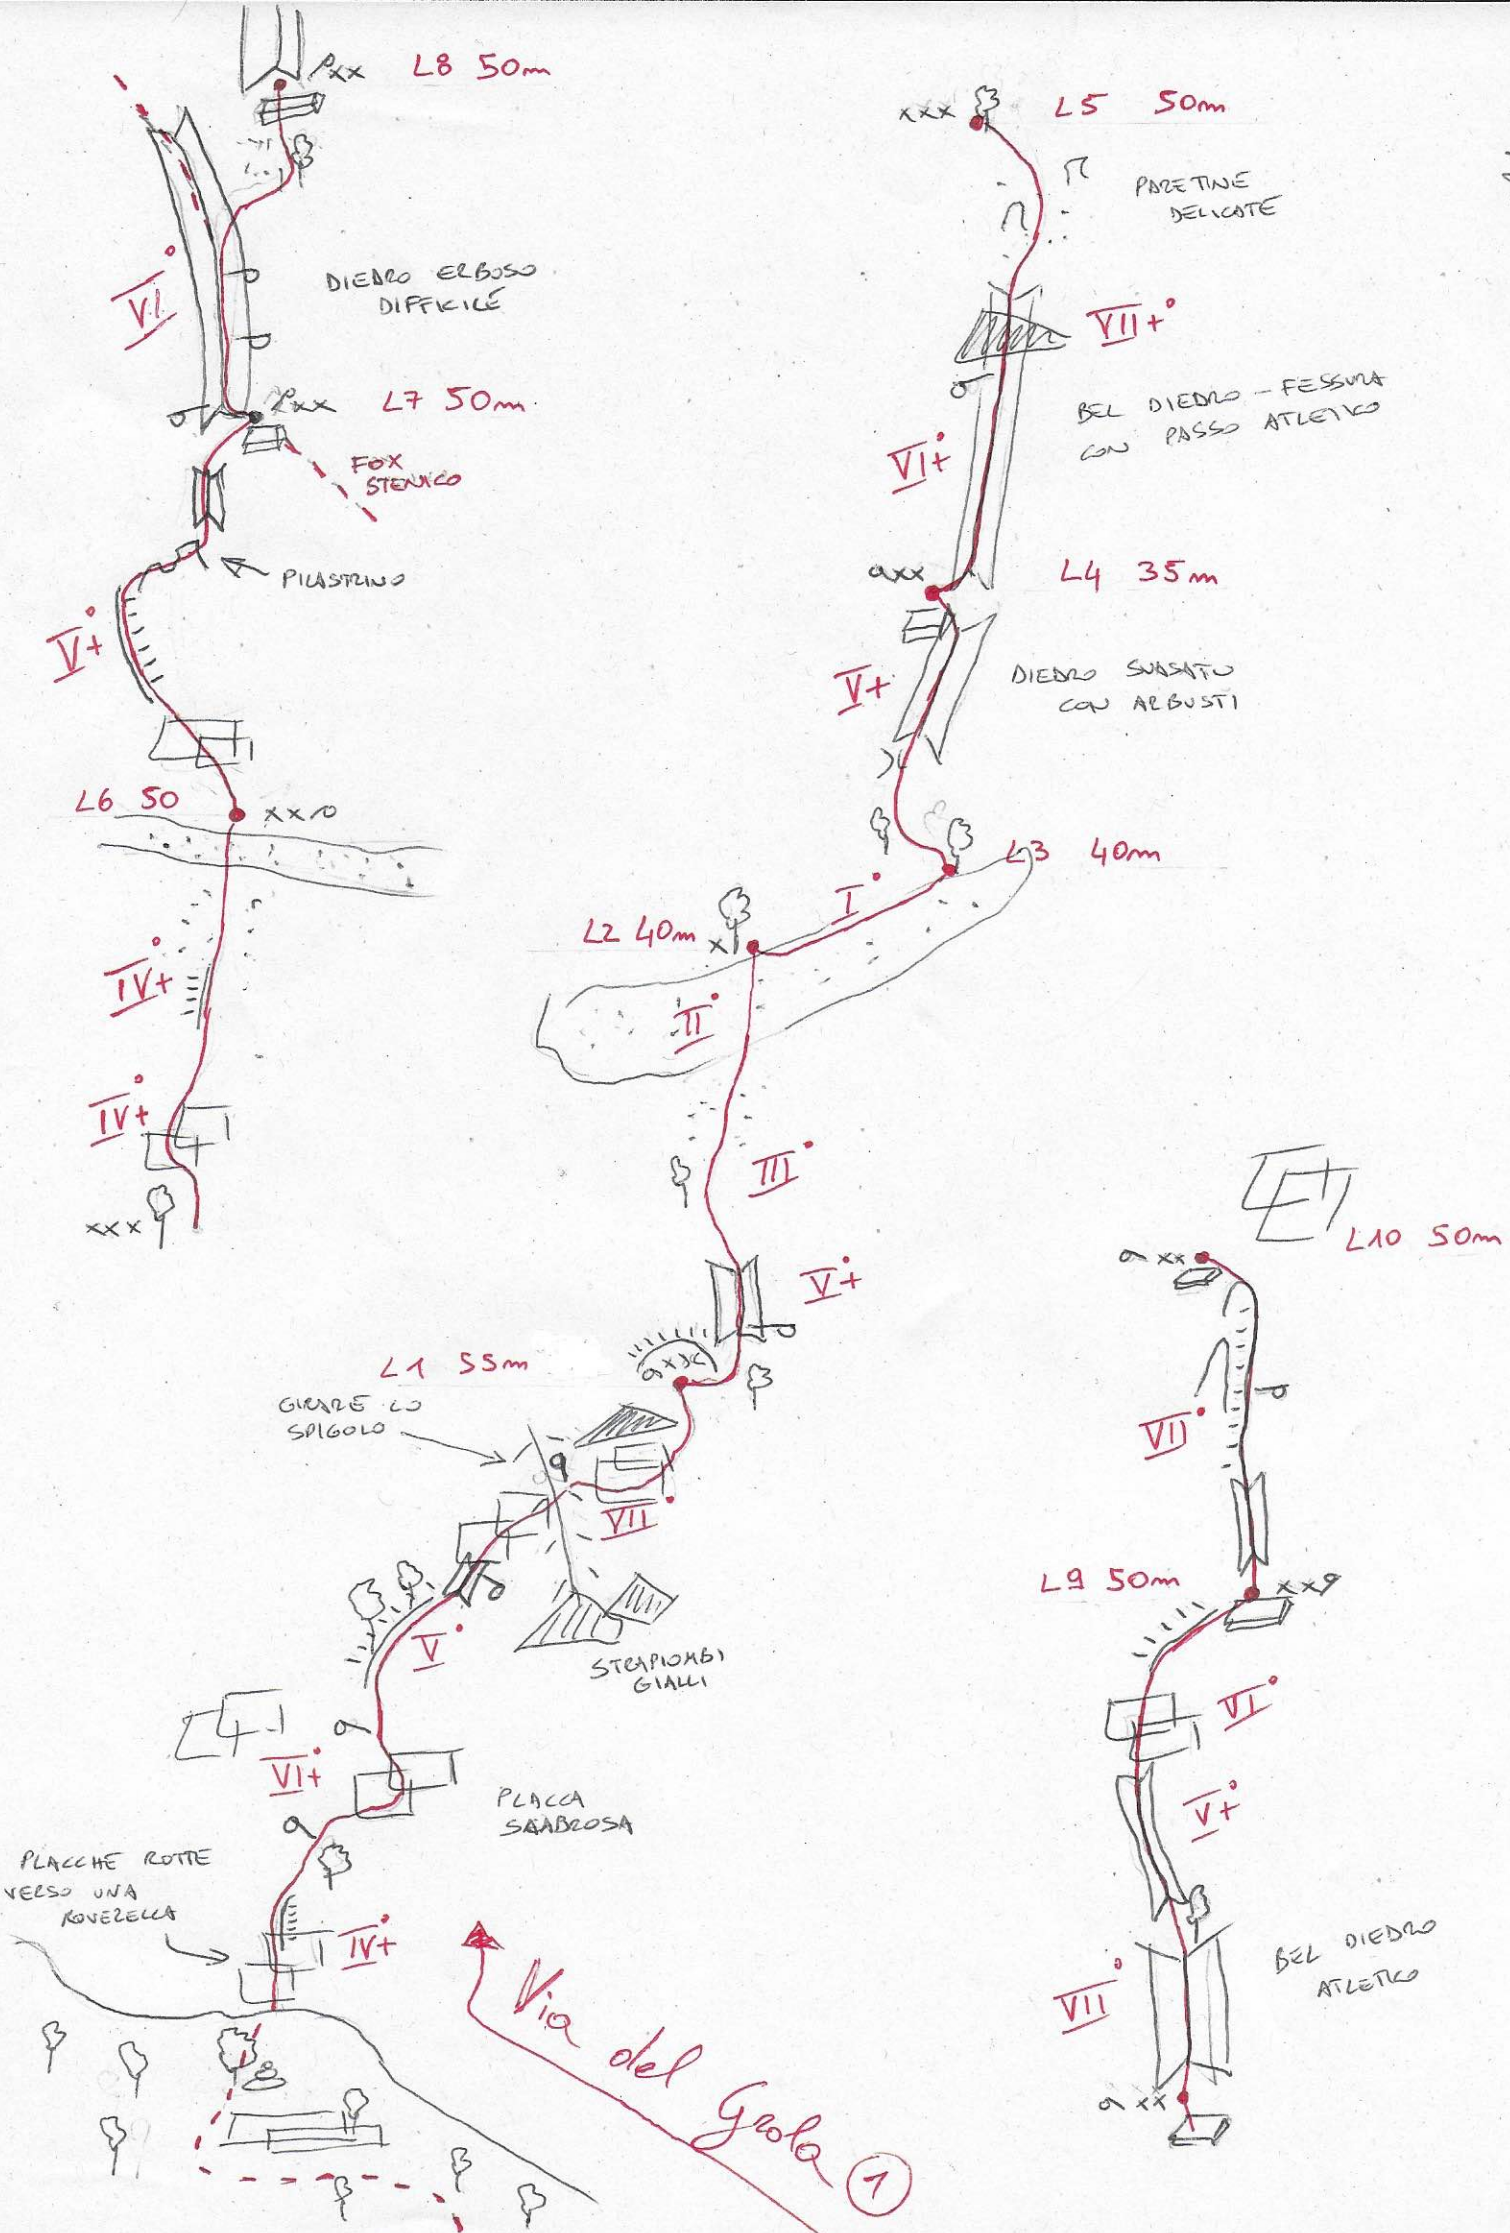 L8 50m
VI°
DIEDRO ERBOSO
DIFFICILE
L7 50m
FOX
STENICO
PILASTRINO
V+°
L6 50
xx
IV+°
IV+°
xxx
xxx
L5 50m
PARETINE
DELICATE
VII+°
BEL DIEDRO - FESSURA
CON PASSO ATLETICO
VI+°
xx
L4 35m
V+°
DIEDRO SVASATO
CON ARBUSTI
L3 40m
I°
L2 40m
x
II°
III°
V+°
L1 55m
GIRARE LO
SPIGOLO
VII°
V°
STRAPIOMBI
GIALLI
VI+°
PLACCA
SCABROSA
PLACCHE ROTTE
VERSO UNA
ROVERELLA
IV+°
Via del Grola 1
L10 50m
xx
VII°
L9 50m
xx
VI°
V+°
BEL DIEDRO
ATLETICO
VII°
xx